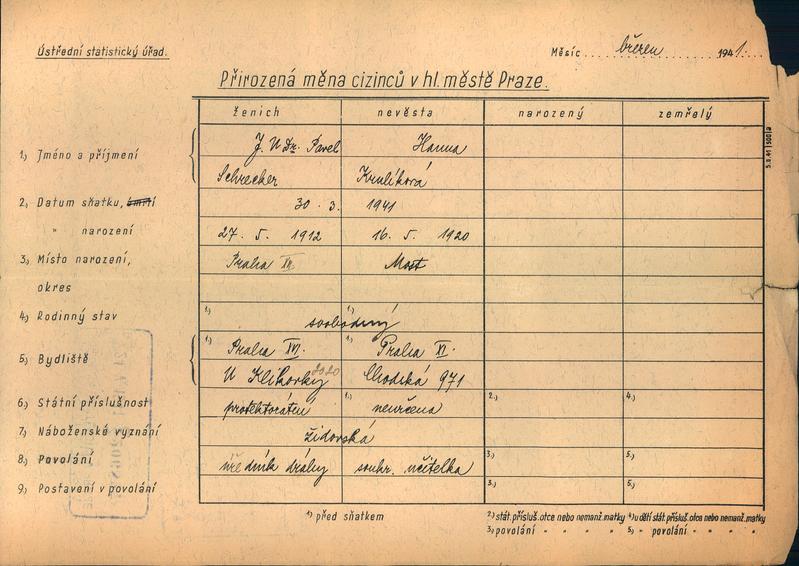 Ústřední statistický úřad.
Měsíc březen 1941.
Přirozená měna cizinců v hl. městě Praze.
ženich nevěsta narozený zemřelý
1.) Jméno a příjmení J. U Dr. Pavel Hanna
Schrecker Krulíková
2.) Datum sňatku, úmrtí 30. 3. 1941
" narození 27. 5. 1912 16. 5. 1920
3.) Místo narození, Praha Most
okres
4.) Rodinný stav 1.) 1.) svobodný
5.) Bydliště 1.) Praha XVI. 1.) Praha XI.
U Klikovky 2020 Chodská 971
6.) Státní příslušnost protektorátní 1.) neurčena 2.) 4.)
7.) Náboženské vyznání židovská
8.) Povolání úředník dráhy soukr. učitelka 3.) 5.)
9.) Postavení v povolání 3.) 5.)
1.) před sňatkem 2.) stát. přísluš. otce nebo nemanž. matky 4.) u dětí stát. přísluš. otce nebo nemanž. matky
3.) povolání " " " " 5.) " povolání " " " "